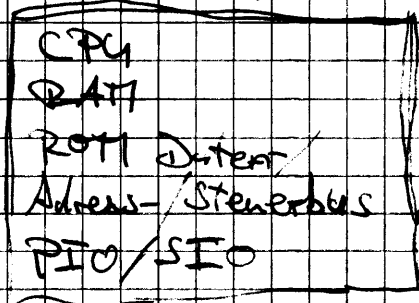 CPU
RAM
ROM Daten/
Adress-/Steuerbus
PIO/SIO